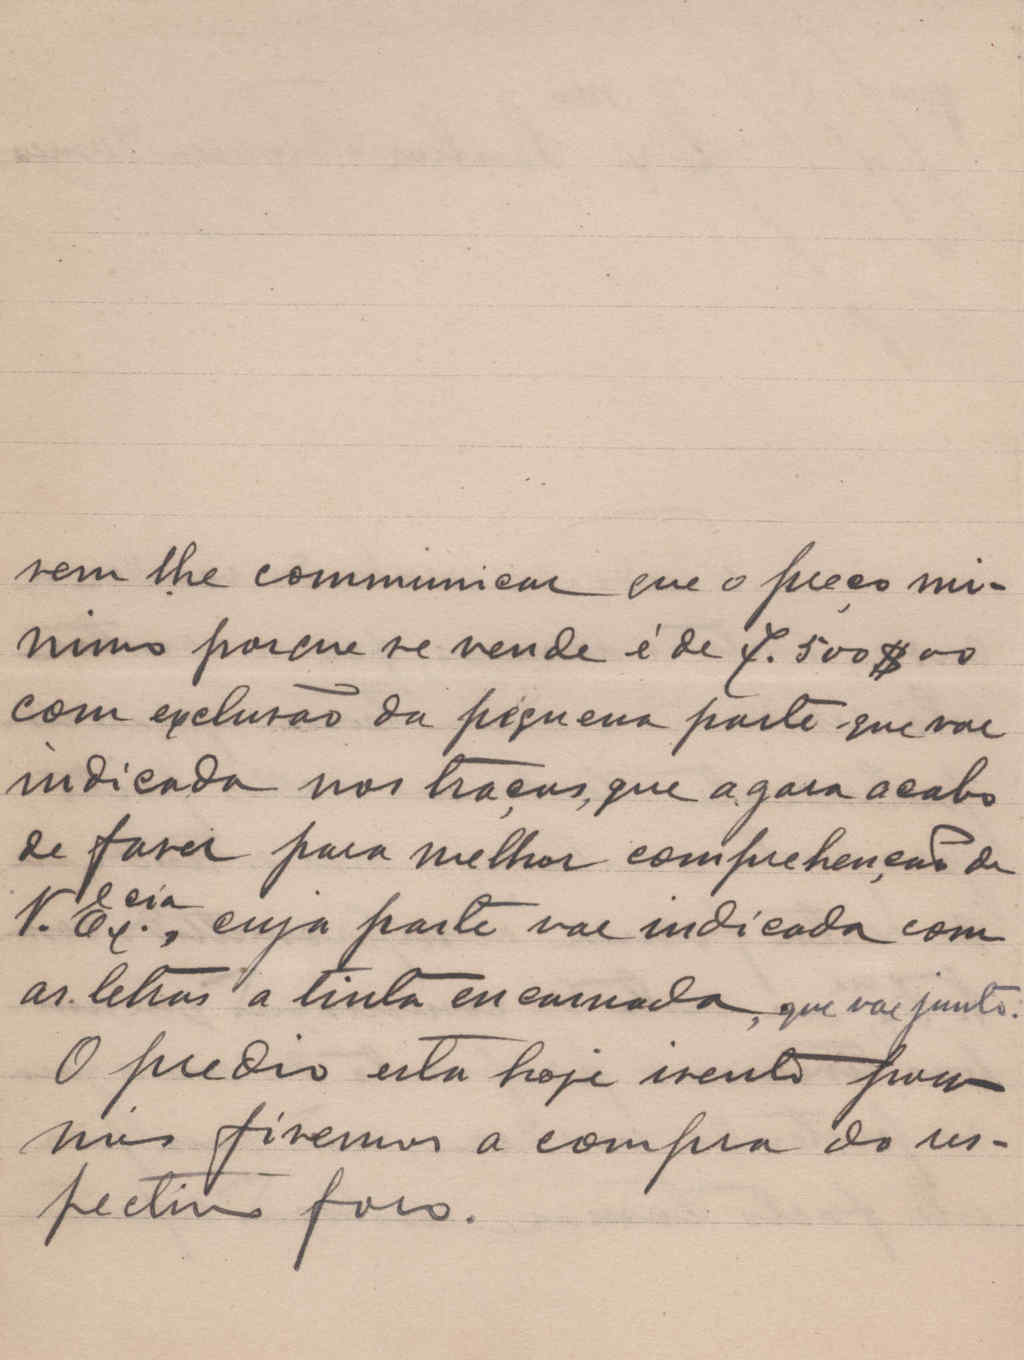 vem lhe communicar que o preço mi-
nimo porque se vende é de 7.500$00
com exclusão da piquena parte que vae
indicada nos traços, que agora acabo
de faser para melhor comprehenção de
V. Ex.cia, cuja parte vae indicada com
as letras a tinta encarnada, que vae junto.
O predio esta hoje isento pois
nós fisemos a compra do res-
pectivo foro.